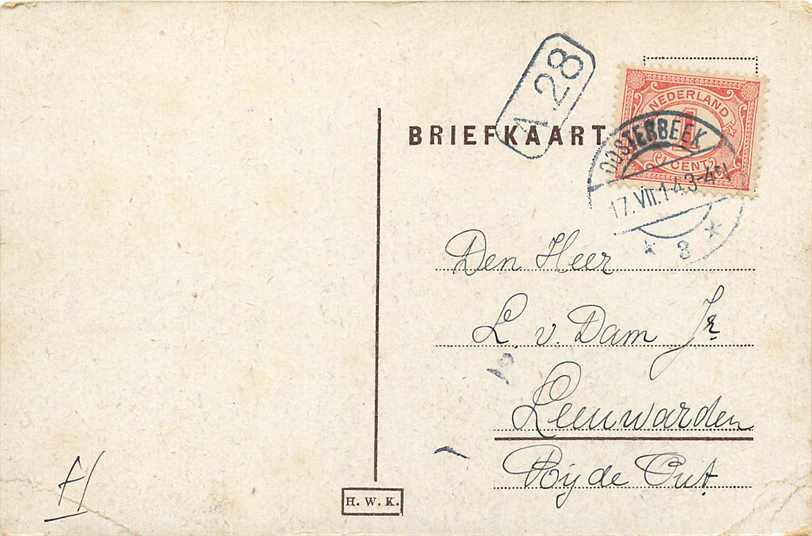 A 28
BRIEFKAART
NEDERLAND
1
CENT
OOSTERBEEK
17.VII.14.3-4N
* 3 *
Den Heer
L. v. Dam Jr
Leeuwarden
Bij de Put
H. W. K.